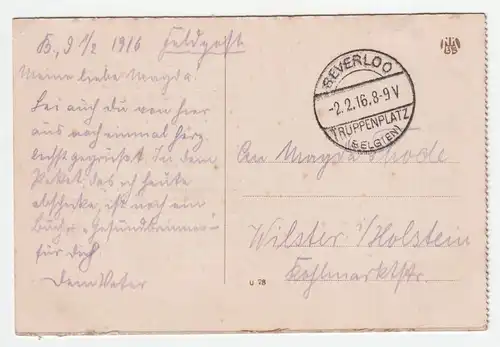 B., d 1/2 1916 Feldpost
Meine liebe Magda!
Sei auch Du von hier
aus noch einmal herz-
lichst gegrüßet. In dem
Paket, das ich heute
abschicke, ist noch ein
Buch:
für Dich
Dein Vater
BEVERLOO
-2.2.16.8-9V
TRUPPENPLATZ
(BELGIEN)
An Magda
Wilster i/Holstein
Kohlmarktstr.
u 28